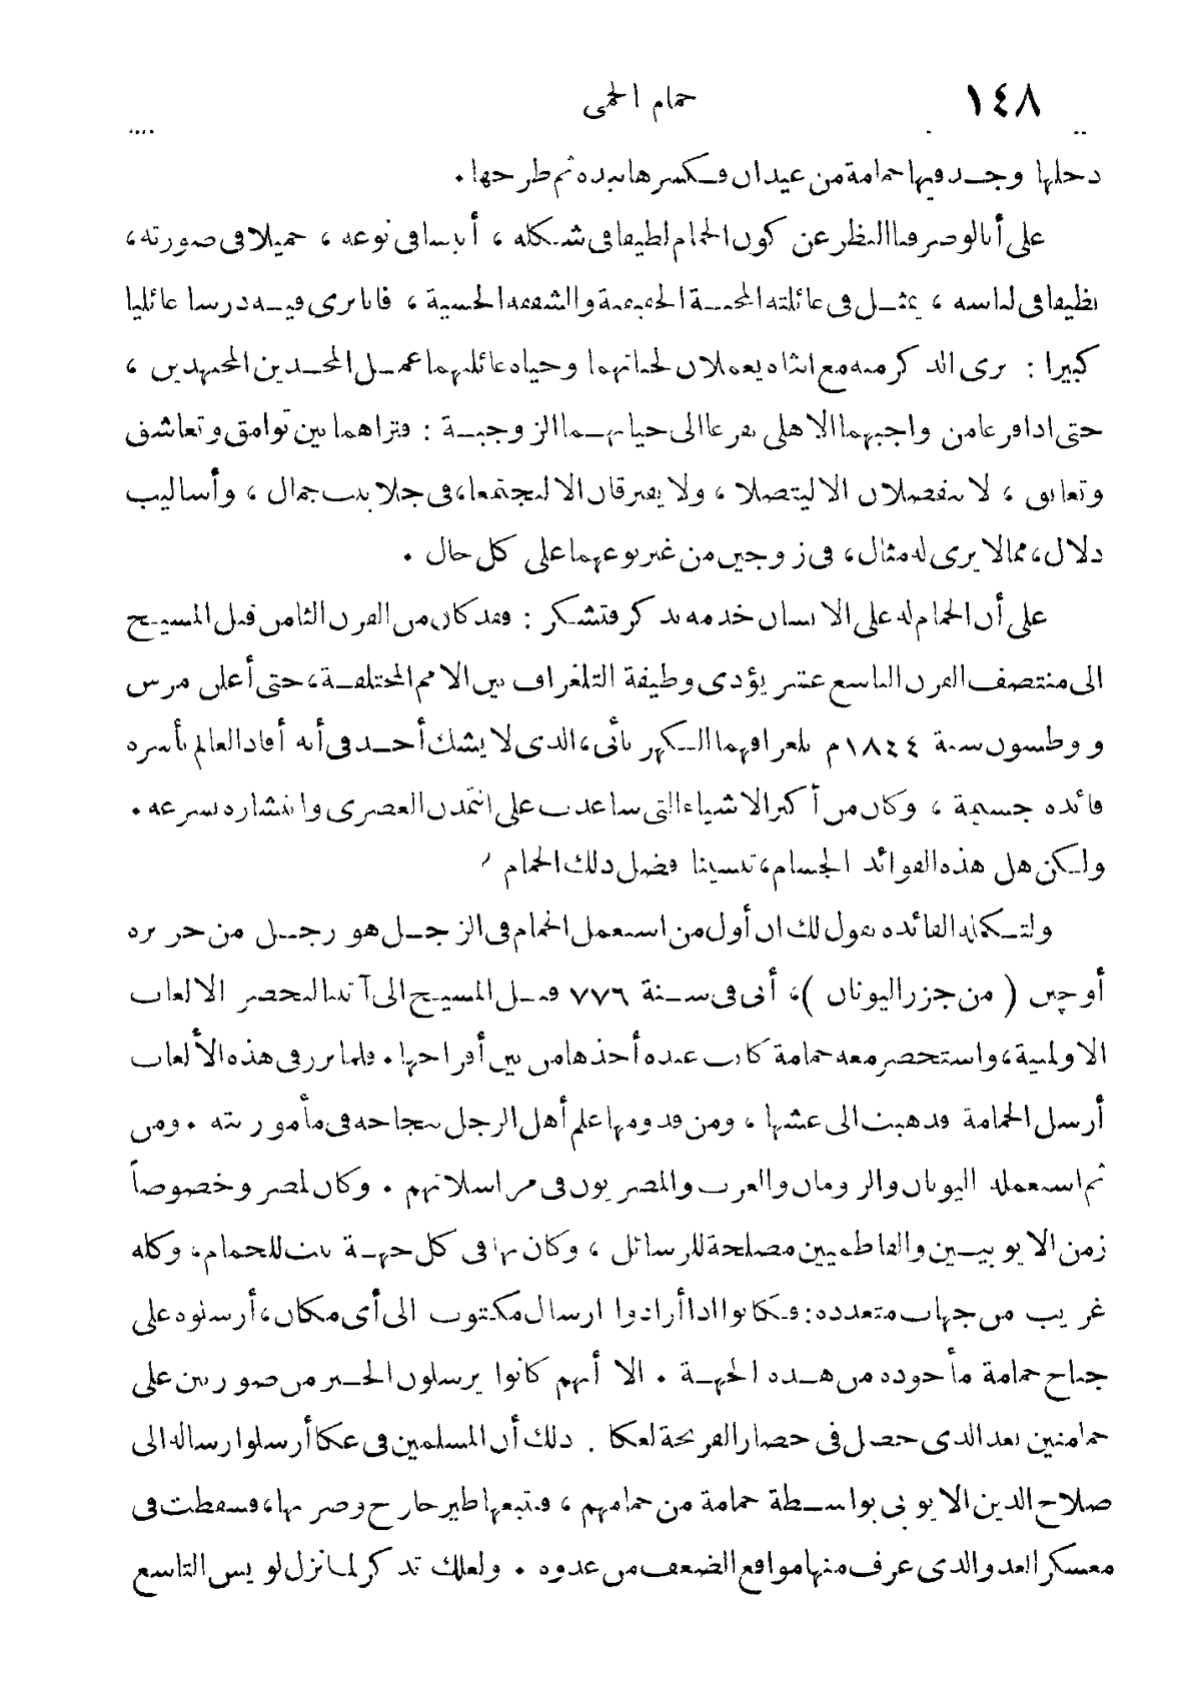 ١٤٨ حمام الحمى
دخلها وجد فيها حمامة من عيدان فكسرها بيده ثم طرحها .
على أنا لو صرفنا النظر عن كون الحمام لطيفا فى شكله ، أنيسا فى نوعه ، جميلا فى صورته،
نظيفا فى لباسه ، يمثل فى عائلته المحبة الحقيقية والشفقه الحسية ، فانا نرى فيه درسا عائليا
كبيرا : نرى الذكر منه مع انثاه يعملان لحياتهما وحياه عائلتهما عمل المجدين المجتهدين ،
حتى اذا فرغا من واجبهما الاهلى تفرغا الى حياتهما الزوجية : فتراهما بين توامق وتعاشق
وتعانق ، لا ينفصلان الا ليتصلا ، ولا يفترقان الا ليجتمعا، فى جلابيب جمال ، وأساليب
دلال، مما لا يرى له مثال، فى زوجين من غير نوعهما على كل حال .
على أن الحمام له على الانسان خدمه تذكر فتشكر : فقد كان من القرن الثامن قبل المسيح
الى منتصف القرن التاسع عشر يؤدى وظيفة التلغراف بين الامم المختلفة، حتى أعلن مرس
ووطسون سنة ١٨٤٤م تلغرافهما الكهربائى، الذى لا يشك أحد فى أنه أفاد العالم بأسره
فائده جسيمة ، وكان من أكبر الاشياء التى ساعدت على التمدن العصرى وانتشاره بسرعه .
ولكن هل هذه الفوائد الجسام، تنسينا فضل ذلك الحمام
ولتكملة الفائده نقول لك ان أول من استعمل الحمام فى الزجل هو رجل من جزيره
أوجين ( من جزر اليونان )، أتى فى سنة ٧٧٦ قبل المسيح الى آتينا ليحضر الالعاب
الاولمبية، واستحضر معه حمامة كانت عنده أخذها من بين أفراخها . فلما برز فى هذه الألعاب
أرسل الحمامة فذهبت الى عشها ، ومن قدومها علم أهل الرجل بنجاحه فى مأموريته . ومن
ثم استعمله اليونان والرومان والعرب والمصريون فى مراسلاتهم . وكان لمصر وخصوصاً
زمن الايوبيين والفاطميين مصلحة للرسائل ، وكان بها فى كل جهة بيت للحمام، وكله
غريب من جهات متعدده: فكانوا اذا أرادوا ارسال مكتوب الى أى مكان، أرسلوه على
جناح حمامة مأخوذه من هذه الجهة . الا أنهم كانوا يرسلون الخبر من صورتين على
حمامتين بعد الذى حصل فى حصار الفرنجة لعكا . ذلك أن المسلمين فى عكا أرسلوا رساله الى
صلاح الدين الايوبى بواسطة حمامة من حمامهم ، فتبعها طير جارح وضربها، فسقطت فى
معسكر العدو الذى عرف منها مواقع الضعف من عدوه . ولعلك تذكر لما نزل لويس التاسع